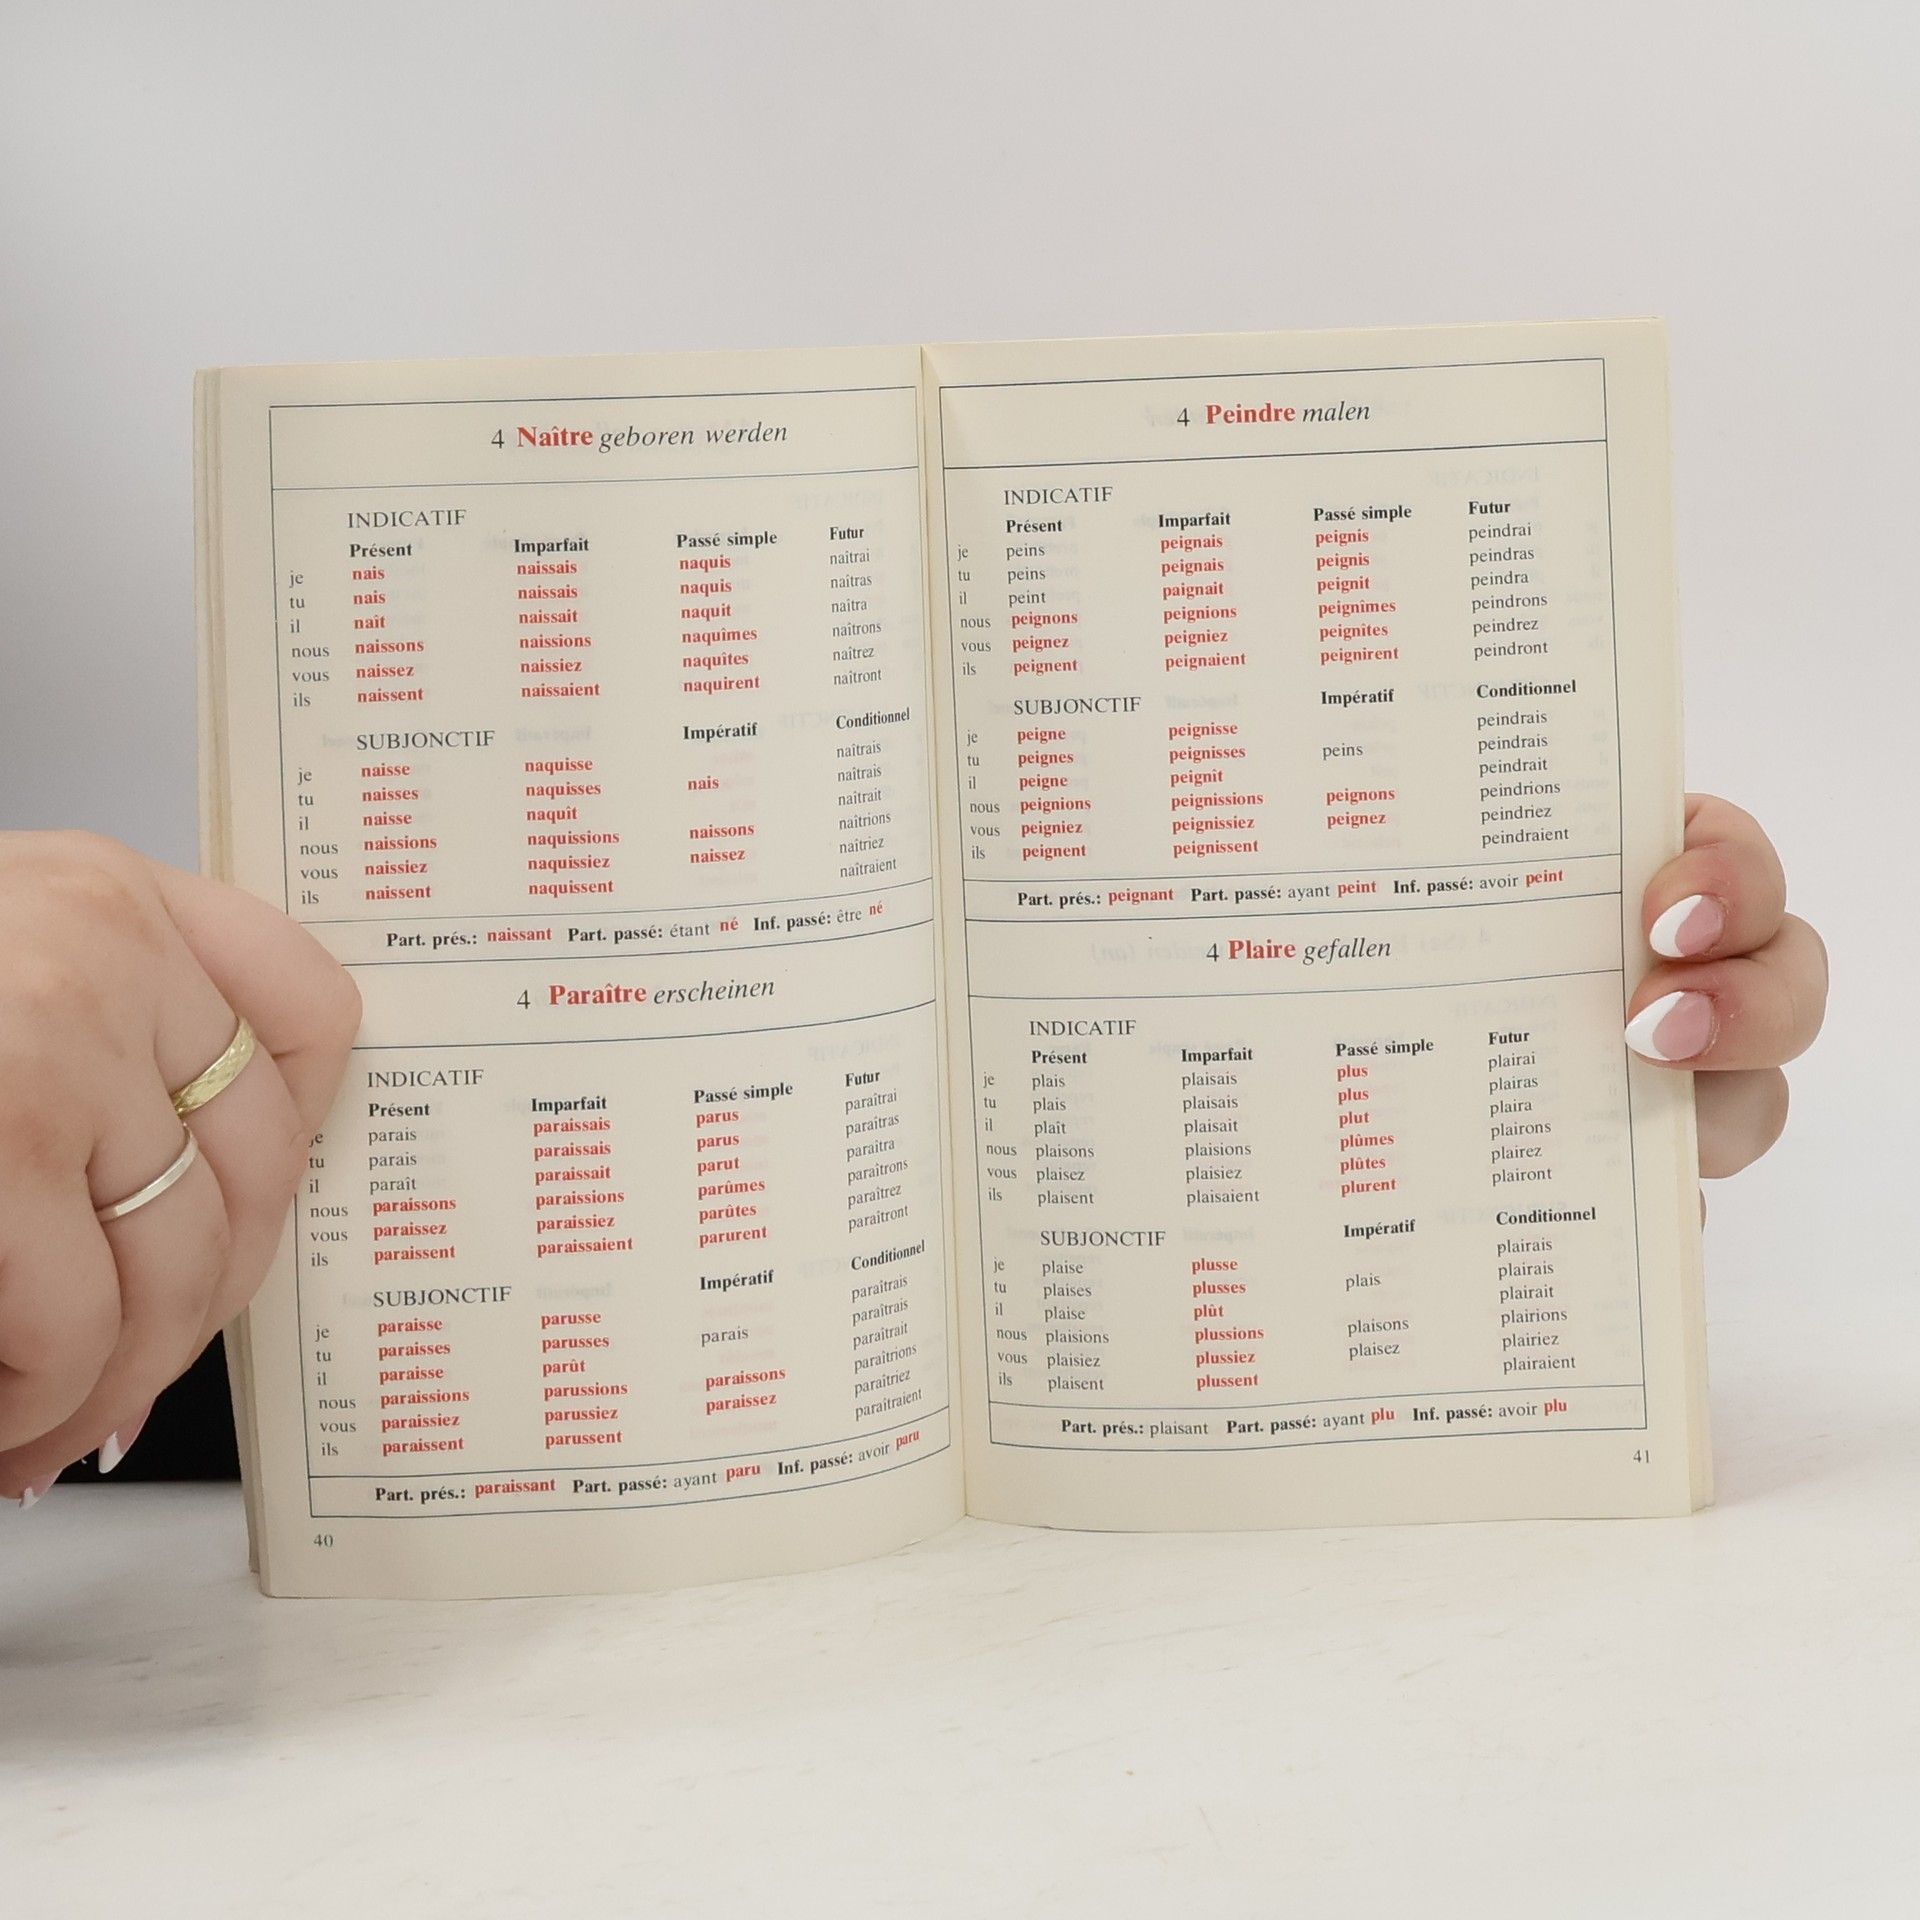 4 Naître geboren werden
INDICATIF
Présent Imparfait Passé simple Futur
je nais naissais naquis naîtrai
tu nais naissais naquis naîtras
il naît naissait naquit naîtra
nous naissons naissions naquîmes naîtrons
vous naissez naissiez naquîtes naîtrez
ils naissent naissaient naquirent naîtront
SUBJONCTIF Impératif Conditionnel
je naisse naquisse naîtrais
tu naisses naquisses nais naîtrais
il naisse naquît naîtrait
nous naissions naquissions naissons naîtrions
vous naissiez naquissiez naissez naîtriez
ils naissent naquissent naîtraient
Part. prés.: naissant Part. passé: étant né Inf. passé: être né
4 Paraître erscheinen
INDICATIF
Présent Imparfait Passé simple Futur
je parais paraissais parus paraîtrai
tu parais paraissais parus paraîtras
il paraît paraissait parut paraîtra
nous paraissons paraissions parûmes paraîtrons
vous paraissez paraissiez parûtes paraîtrez
ils paraissent paraissaient parurent paraîtront
SUBJONCTIF Impératif Conditionnel
je paraisse parusse paraîtrais
tu paraisses parusses parais paraîtrais
il paraisse parût paraîtrait
nous paraissions parussions paraissons paraîtrions
vous paraissiez parussiez paraissez paraîtriez
ils paraissent parussent paraîtraient
Part. prés.: paraissant Part. passé: ayant paru Inf. passé: avoir paru
40
4 Peindre malen
INDICATIF
Présent Imparfait Passé simple Futur
je peins peignais peignis peindrai
tu peins peignais peignis peindras
il peint paignait peignit peindra
nous peignons peignions peignîmes peindrons
vous peignez peigniez peignîtes peindrez
ils peignent peignaient peignirent peindront
SUBJONCTIF Impératif Conditionnel
je peigne peignisse peindrais
tu peignes peignisses peins peindrais
il peigne peignît peindrait
nous peignions peignissions peignons peindrions
vous peigniez peignissiez peignez peindriez
ils peignent peignissent peindraient
Part. prés.: peignant Part. passé: ayant peint Inf. passé: avoir peint
4 Plaire gefallen
INDICATIF
Présent Imparfait Passé simple Futur
je plais plaisais plus plairai
tu plais plaisais plus plairas
il plaît plaisait plut plaira
nous plaisons plaisions plûmes plairons
vous plaisez plaisiez plûtes plairez
ils plaisent plaisaient plurent plairont
SUBJONCTIF Impératif Conditionnel
je plaise plusse plairais
tu plaises plusses plais plairais
il plaise plût plairait
nous plaisions plussions plaisons plairions
vous plaisiez plussiez plaisez plairiez
ils plaisent plussent plairaient
Part. prés.: plaisant Part. passé: ayant plu Inf. passé: avoir plu
41